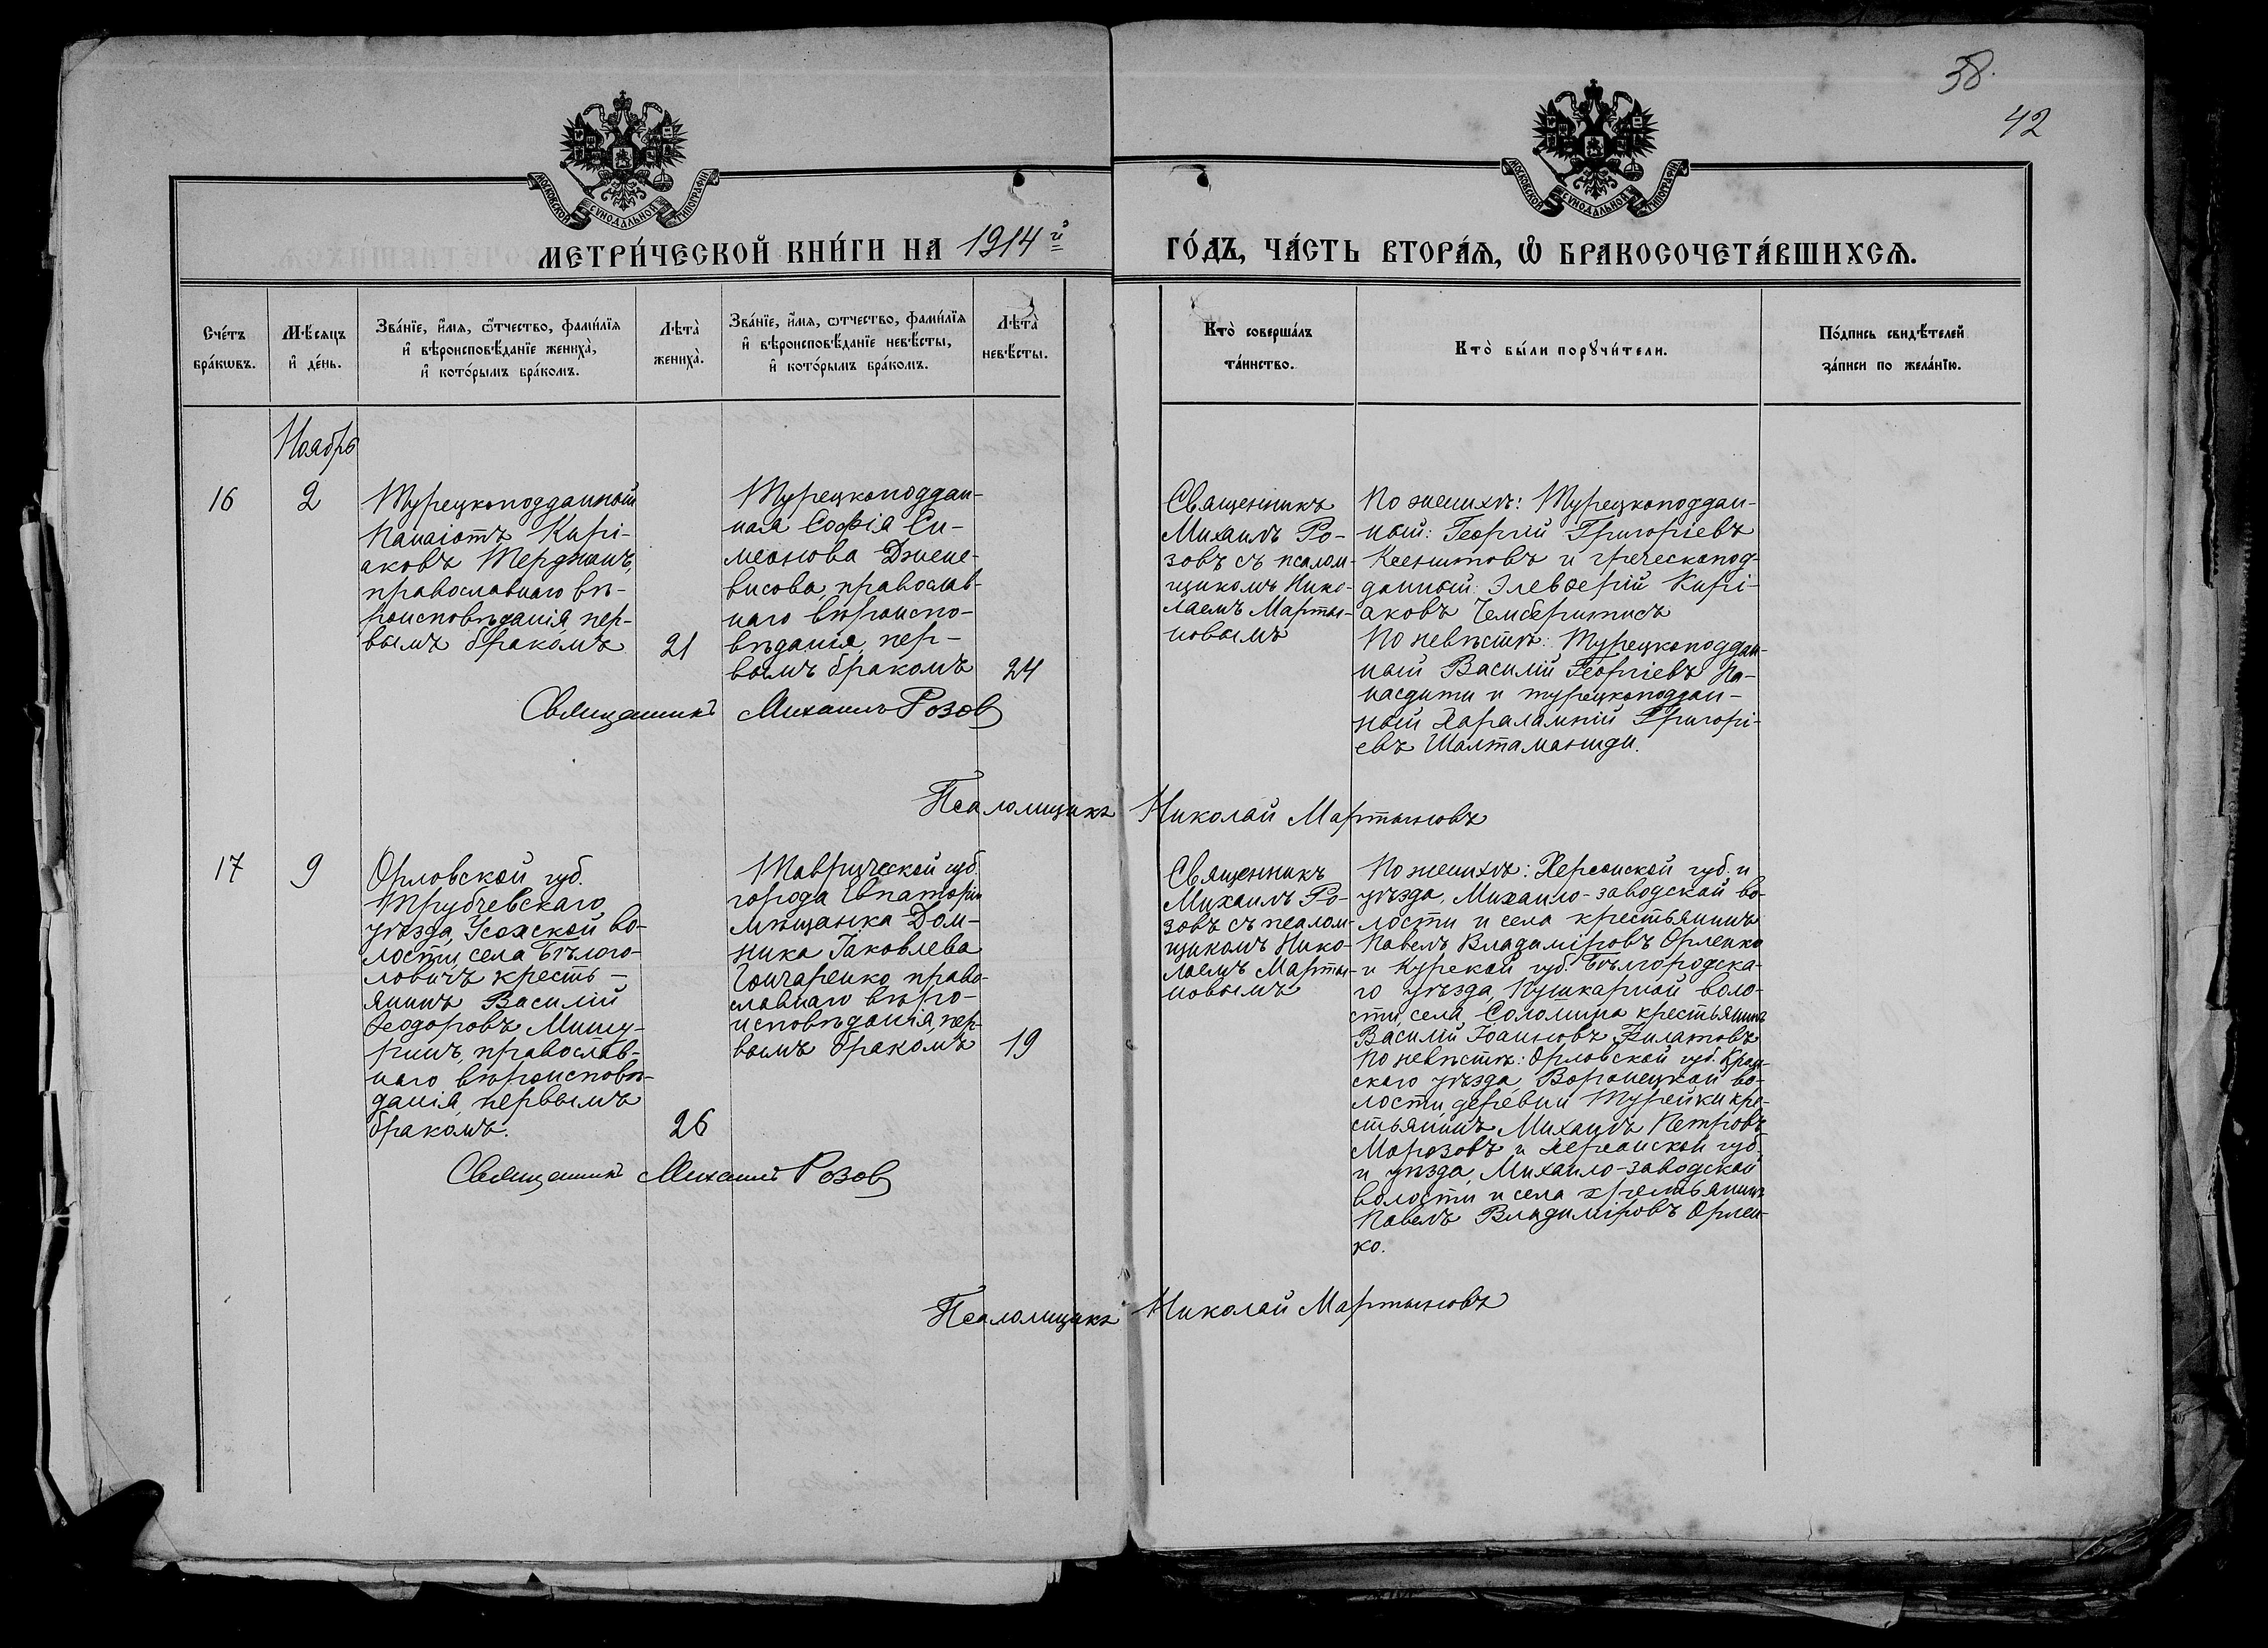 38.
42
МОСКОВСКОЙ СѴНОДАЛЬНОЙ ТИПОГРАФІИ
МОСКОВСКОЙ СѴНОДАЛЬНОЙ ТИПОГРАФІИ
МЕТРИ́ЧЕСКОЙ КНИ́ГИ НА 1914й
ГО́ДЪ, ЧА́СТЬ ВТОРА́Ѧ, Ѽ БРАКОСОЧЕТА́ВШИХСѦ.
Сче́тъ
бра́кѡвъ.
Мѣ́сяцъ
и҆ де́нь.
Зва́нїе, и҆́мѧ, ѻ҆́тчество, фамѝлїѧ
и҆ вѣроисповѣ́данїе женихà,
и҆ кото́рымъ бра́комъ.
Лѣтà
женихà.
Зва́нїе, и҆́мѧ, ѻ҆́тчество, фамѝлїѧ
и҆ вѣроисповѣ́данїе невѣ́сты,
и҆ кото́рымъ бра́комъ.
Лѣтà
невѣ́сты.
Кто̀ соверша́лъ
та́инство.
Кто̀ бы́ли порꙋчи́тели.
По́дпись свидѣ́телей
за́писи по жела́нїю.
Ноябрь
16
2
Турецкоподданный
Панаіотъ Кирі-
аковъ Терджанъ,
православнаго вѣ-
роисповѣданія, пер-
вымъ бракомъ
21
Турецкоподдан-
ная Софія Си-
меонова Джене-
висова, православ-
наго вѣроиспо-
вѣданія, пер-
вымъ бракомъ
24
Священникъ
Михаилъ Ро-
зовъ съ псалом-
щикомъ Нико-
лаемъ Марты-
новымъ
По женихѣ: Турецкоподдан-
ный: Георгій Григоріевъ
Ксенитовъ и греческопод-
данный: Элевѳерій Кирі-
аковъ Чемберитисъ
По невѣстѣ: Турецкоподдан-
ный Василій Георгіевъ Па-
насдити и турецкоподдан-
ный Харалампій Григорі-
евъ Шалтамониди.
Священникъ Михаилъ Розов
Псаломщикъ Николай Мартыновъ
17
9
Орловской губ.
Трубчевскаго
уѣзда, Усохской во-
лости, села Бѣлого-
ловичъ кресть-
янинъ Василій
Ѳеодоровъ Мишу-
ринъ, православ-
наго вѣроисповѣ-
данія, первымъ
бракомъ.
26
Таврической губ.
города Евпаторіи
мѣщанка Дом-
ника Іаковлева
Гончаренко, право-
славнаго вѣро-
исповѣданія, пер-
вымъ бракомъ
19
Священникъ
Михаилъ Ро-
зовъ съ псалом-
щикомъ Нико-
лаемъ Марты-
новымъ
По женихѣ: Херсонской губ. и
уѣзда, Михаило-заводской во-
лости и села крестьянинъ
Павелъ Владиміровъ Орленко
и Курской губ. Бѣлгородска-
го уѣзда, Пушкарной воло-
сти, села Соломина крестьянинъ
Василій Іоанновъ Филатовъ
По невѣстѣ: Орловской губ. Кром-
скаго уѣзда, Воронецкой во-
лости, деревни Турейки кре-
стьянинъ Михаилъ Петровъ
Морозовъ и Херсонской губ.
и уѣзда, Михаило-заводской
волости и села крестьянинъ
Павелъ Владиміровъ Орлен-
ко.
Священникъ Михаилъ Розов
Псаломщикъ Николай Мартыновъ